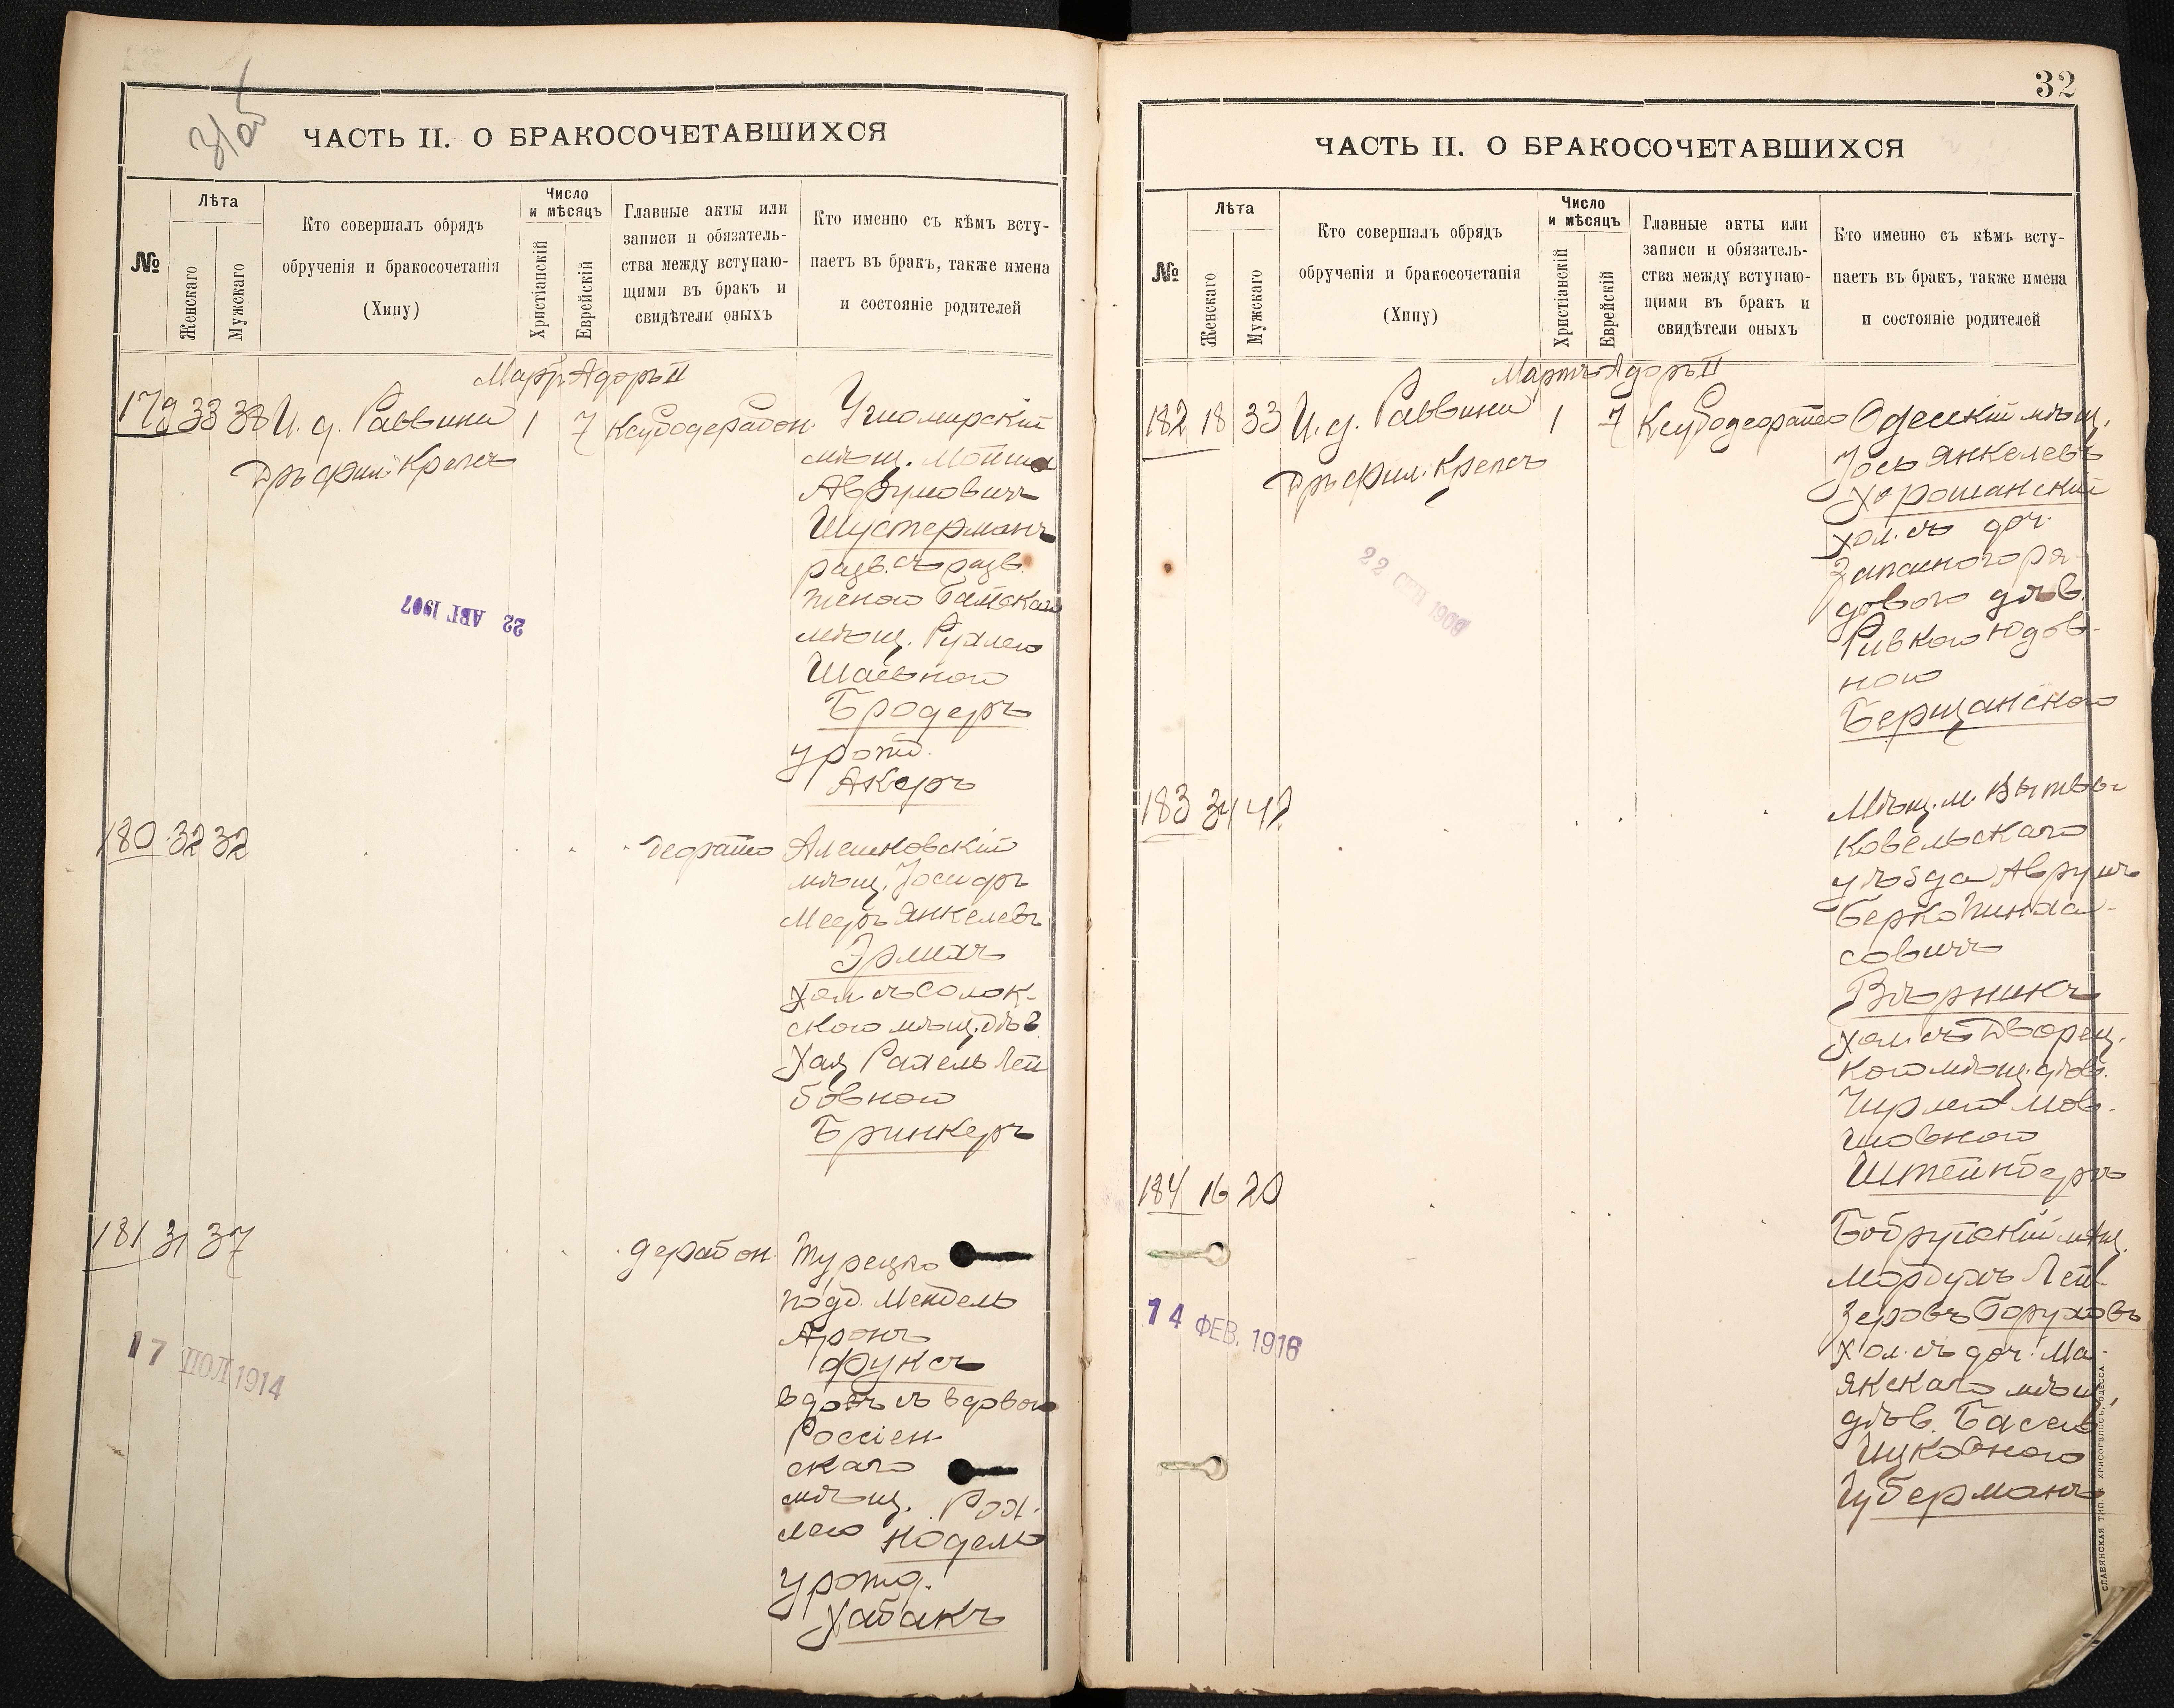 31об
ЧАСТЬ II. О БРАКОСОЧЕТАВШИХСЯ
№
Лѣта
Женскаго
Мужскаго
Кто совершалъ обрядъ
обрученія и бракосочетанія
(Хипу)
Число
и мѣсяцъ
Христіанскій
Еврейскій
Главные акты или
записи и обязатель-
ства между вступаю-
щими въ бракъ и
свидѣтели оныхъ
Кто именно съ кѣмъ всту-
паетъ въ бракъ, также имена
и состояніе родителей
Мартъ Адоръ II
179 33 38 И. д. Раввина 1 7
Дръ Фил. Крепсъ
мѣщ.
Аврумовичъ
Шустерманъ
разв. съ разв.
мѣщ. Рухлею
Бродеръ
урожд.
Акеръ
22 АВГ 1907
180 32 32
Алешковскій
мѣщ. Іосифъ
Мееръ Янкелевъ
Эрлихъ
хол. съ Солок-
скою мѣщ. дѣв.
Хая Рахель Лей
бовною
Бринкеръ
181 31 37
Турецко
подд. Мендель
Аронъ
Фуксъ
вдовъ съ вдовою
Россіен
скаго
мѣщ. Рох.
лею Нодель
урожд.
Хабакъ
17 ІЮЛ 1914
32
ЧАСТЬ II. О БРАКОСОЧЕТАВШИХСЯ
№
Лѣта
Женскаго
Мужскаго
Кто совершалъ обрядъ
обрученія и бракосочетанія
(Хипу)
Число
и мѣсяцъ
Христіанскій
Еврейскій
Главные акты или
записи и обязатель-
ства между вступаю-
щими въ бракъ и
свидѣтели оныхъ
Кто именно съ кѣмъ всту-
паетъ въ бракъ, также имена
и состояніе родителей
Мартъ Адоръ II
182 18 33 И. д. Раввина 1 7
Дръ Фил. Крепсъ
Одесскій мѣщ.
Іось Янкелевъ
Хорошанскій
хол. съ доч.
Запасного ря-
дового дѣв.
Ривкою Юдов-
ною
Берщанскою
22 СЕН 1909
183 34 42
Мѣщ. м.
Ковельскаго
уѣзда Аврумъ
Берко Пинха-
совичъ
Вѣрникъ
хол. съ Дворец.
кою мѣщ. дѣв.
Мов-
шовною
Штейнбергъ
184 16 20
Бобруйскій мѣщ.
Мордухъ Лей-
зеровъ Боруховъ
хол. съ доч. Ма-
якскаго мѣщ.
дѣв. Басею
Ицковною
Губерманъ
14 ФЕВ. 1916
СЛАВЯНСКАЯ ТИП. Н. ХРИСОГЕЛОСЪ, ОДЕССА.